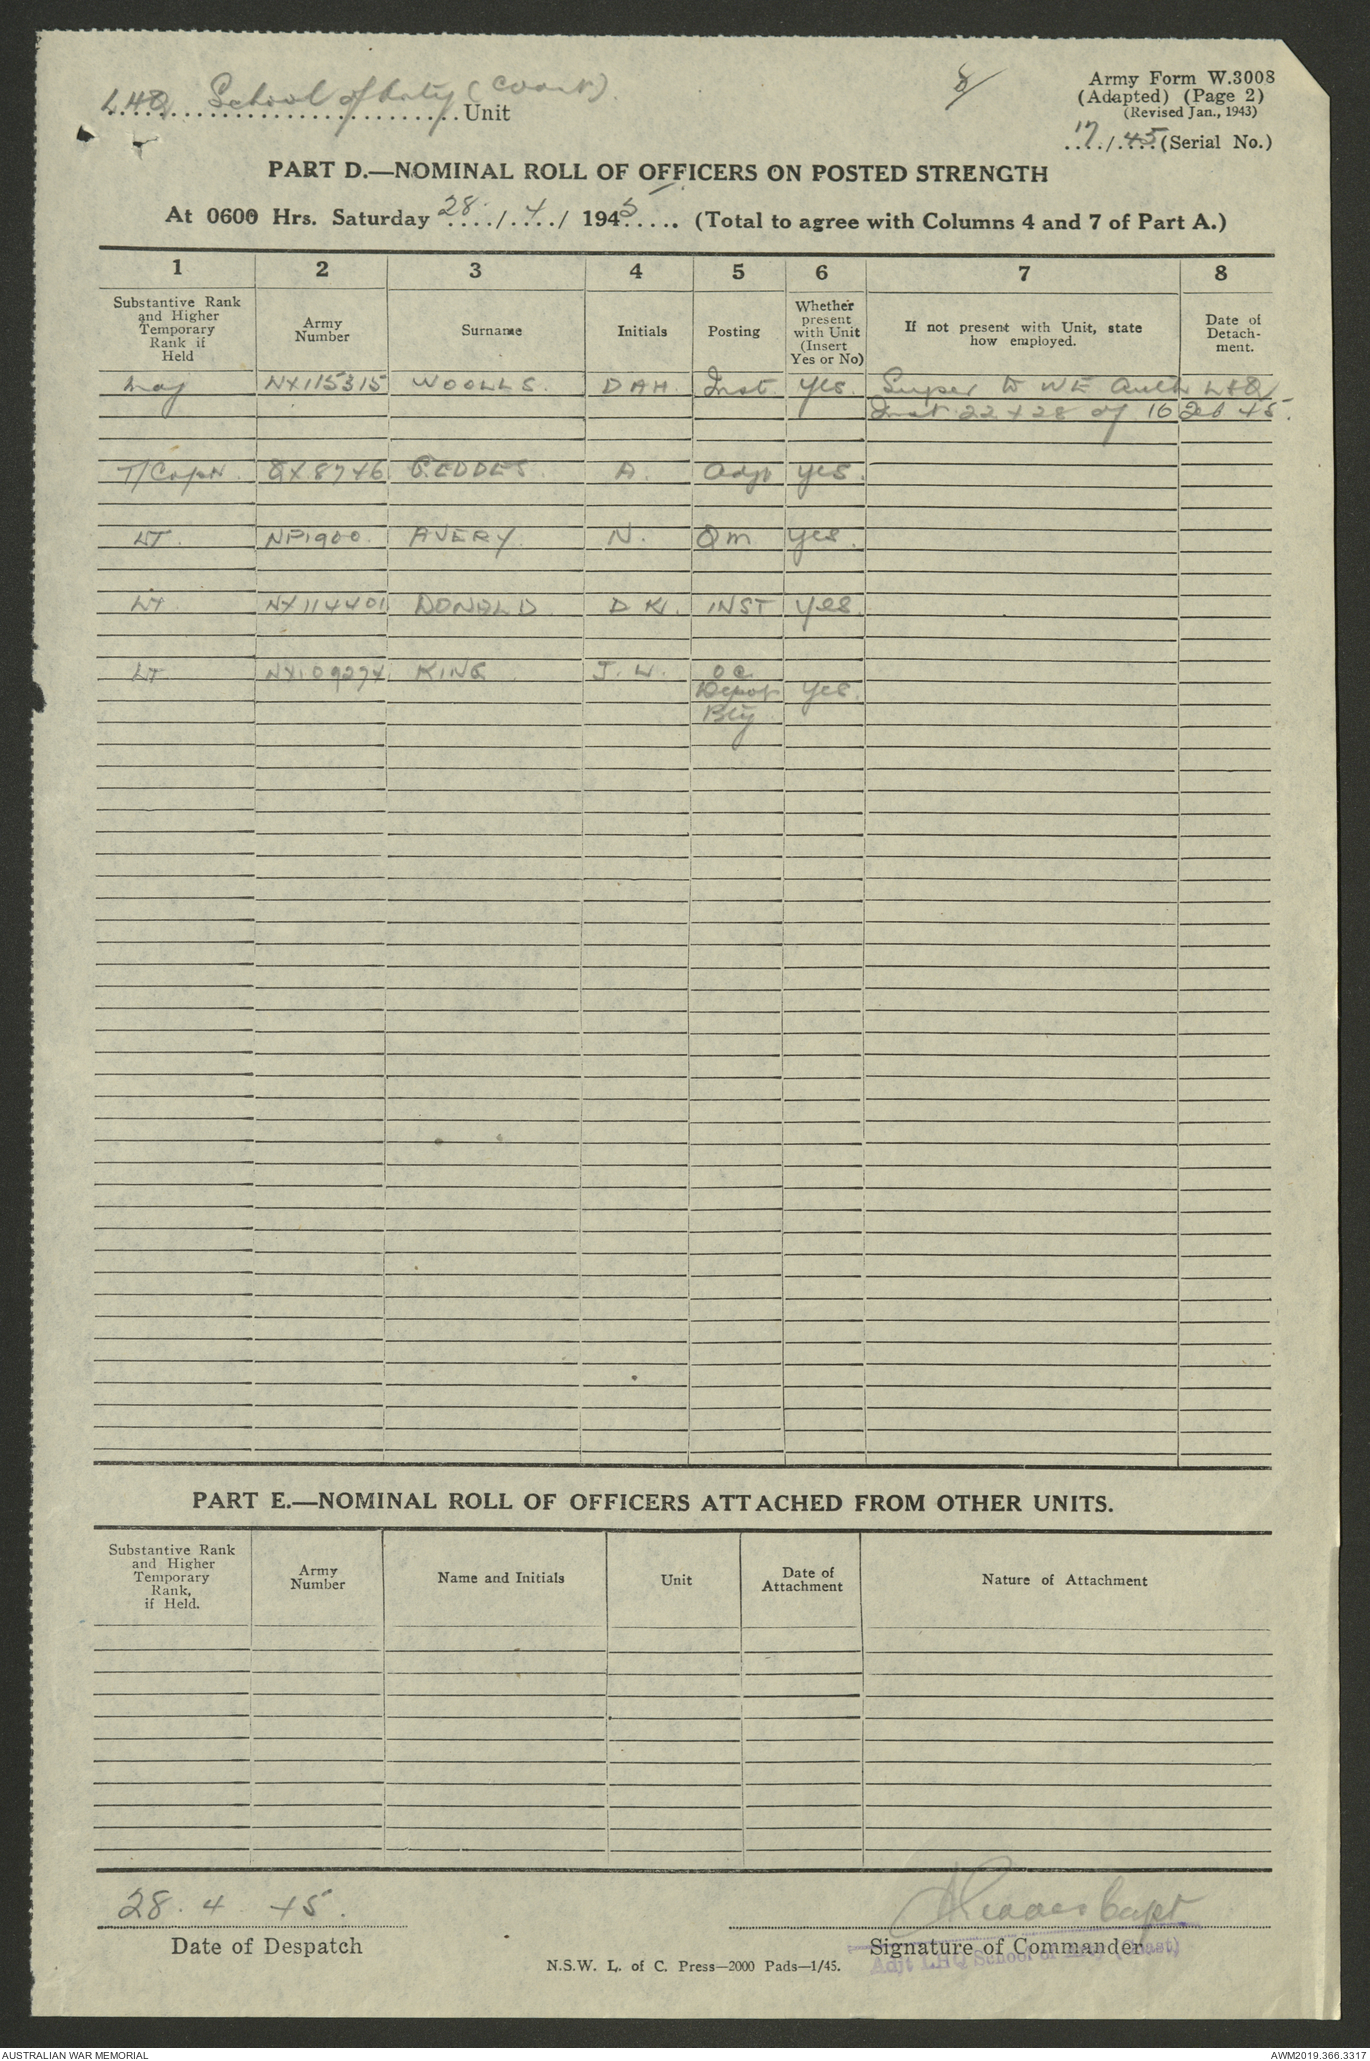 LHQ School of Arty (Coast) Unit
8/
Army Form W.3008
(Adapted) (Page 2)
(Revised Jan., 1943)
17/45 (Serial No.)
PART D.—NOMINAL ROLL OF OFFICERS ON POSTED STRENGTH
At 0600 Hrs. Saturday 28/4/1945 (Total to agree with Columns 4 and 7 of Part A.)
1 2 3 4 5 6 7 8
Substantive Rank
and Higher
Temporary
Rank if
Held
Army
Number
Surname
Initials
Posting
Whether
present
with Unit
(Insert
Yes or No)
If not present with Unit, state
how employed.
Date of
Detach-
ment.
Maj NX115315 WOOLLS. D A H. Inst yes. Super to WE Auth LHQ
Inst 22428 of 16 Feb 45.
T/Capt. QX8746 GEDDES. A. Adjt yes.
LT. NP1900. AVERY. N. Qm yes.
LT. NX114401 DONALD D K. INST yes.
LT. NX109274 KING J. W. OC
Depot yes.
Bty
PART E.—NOMINAL ROLL OF OFFICERS ATTACHED FROM OTHER UNITS.
Substantive Rank
and Higher
Temporary
Rank,
if Held.
Army
Number
Name and Initials
Unit
Date of
Attachment
Nature of Attachment
28. 4 45.
AGeddes Capt
Date of Despatch
Signature of Commander
Adjt LHQ School of Arty (Coast)
N.S.W. L. of C. Press—2000 Pads—1/45.
AUSTRALIAN WAR MEMORIAL
AWM2019.366.3317